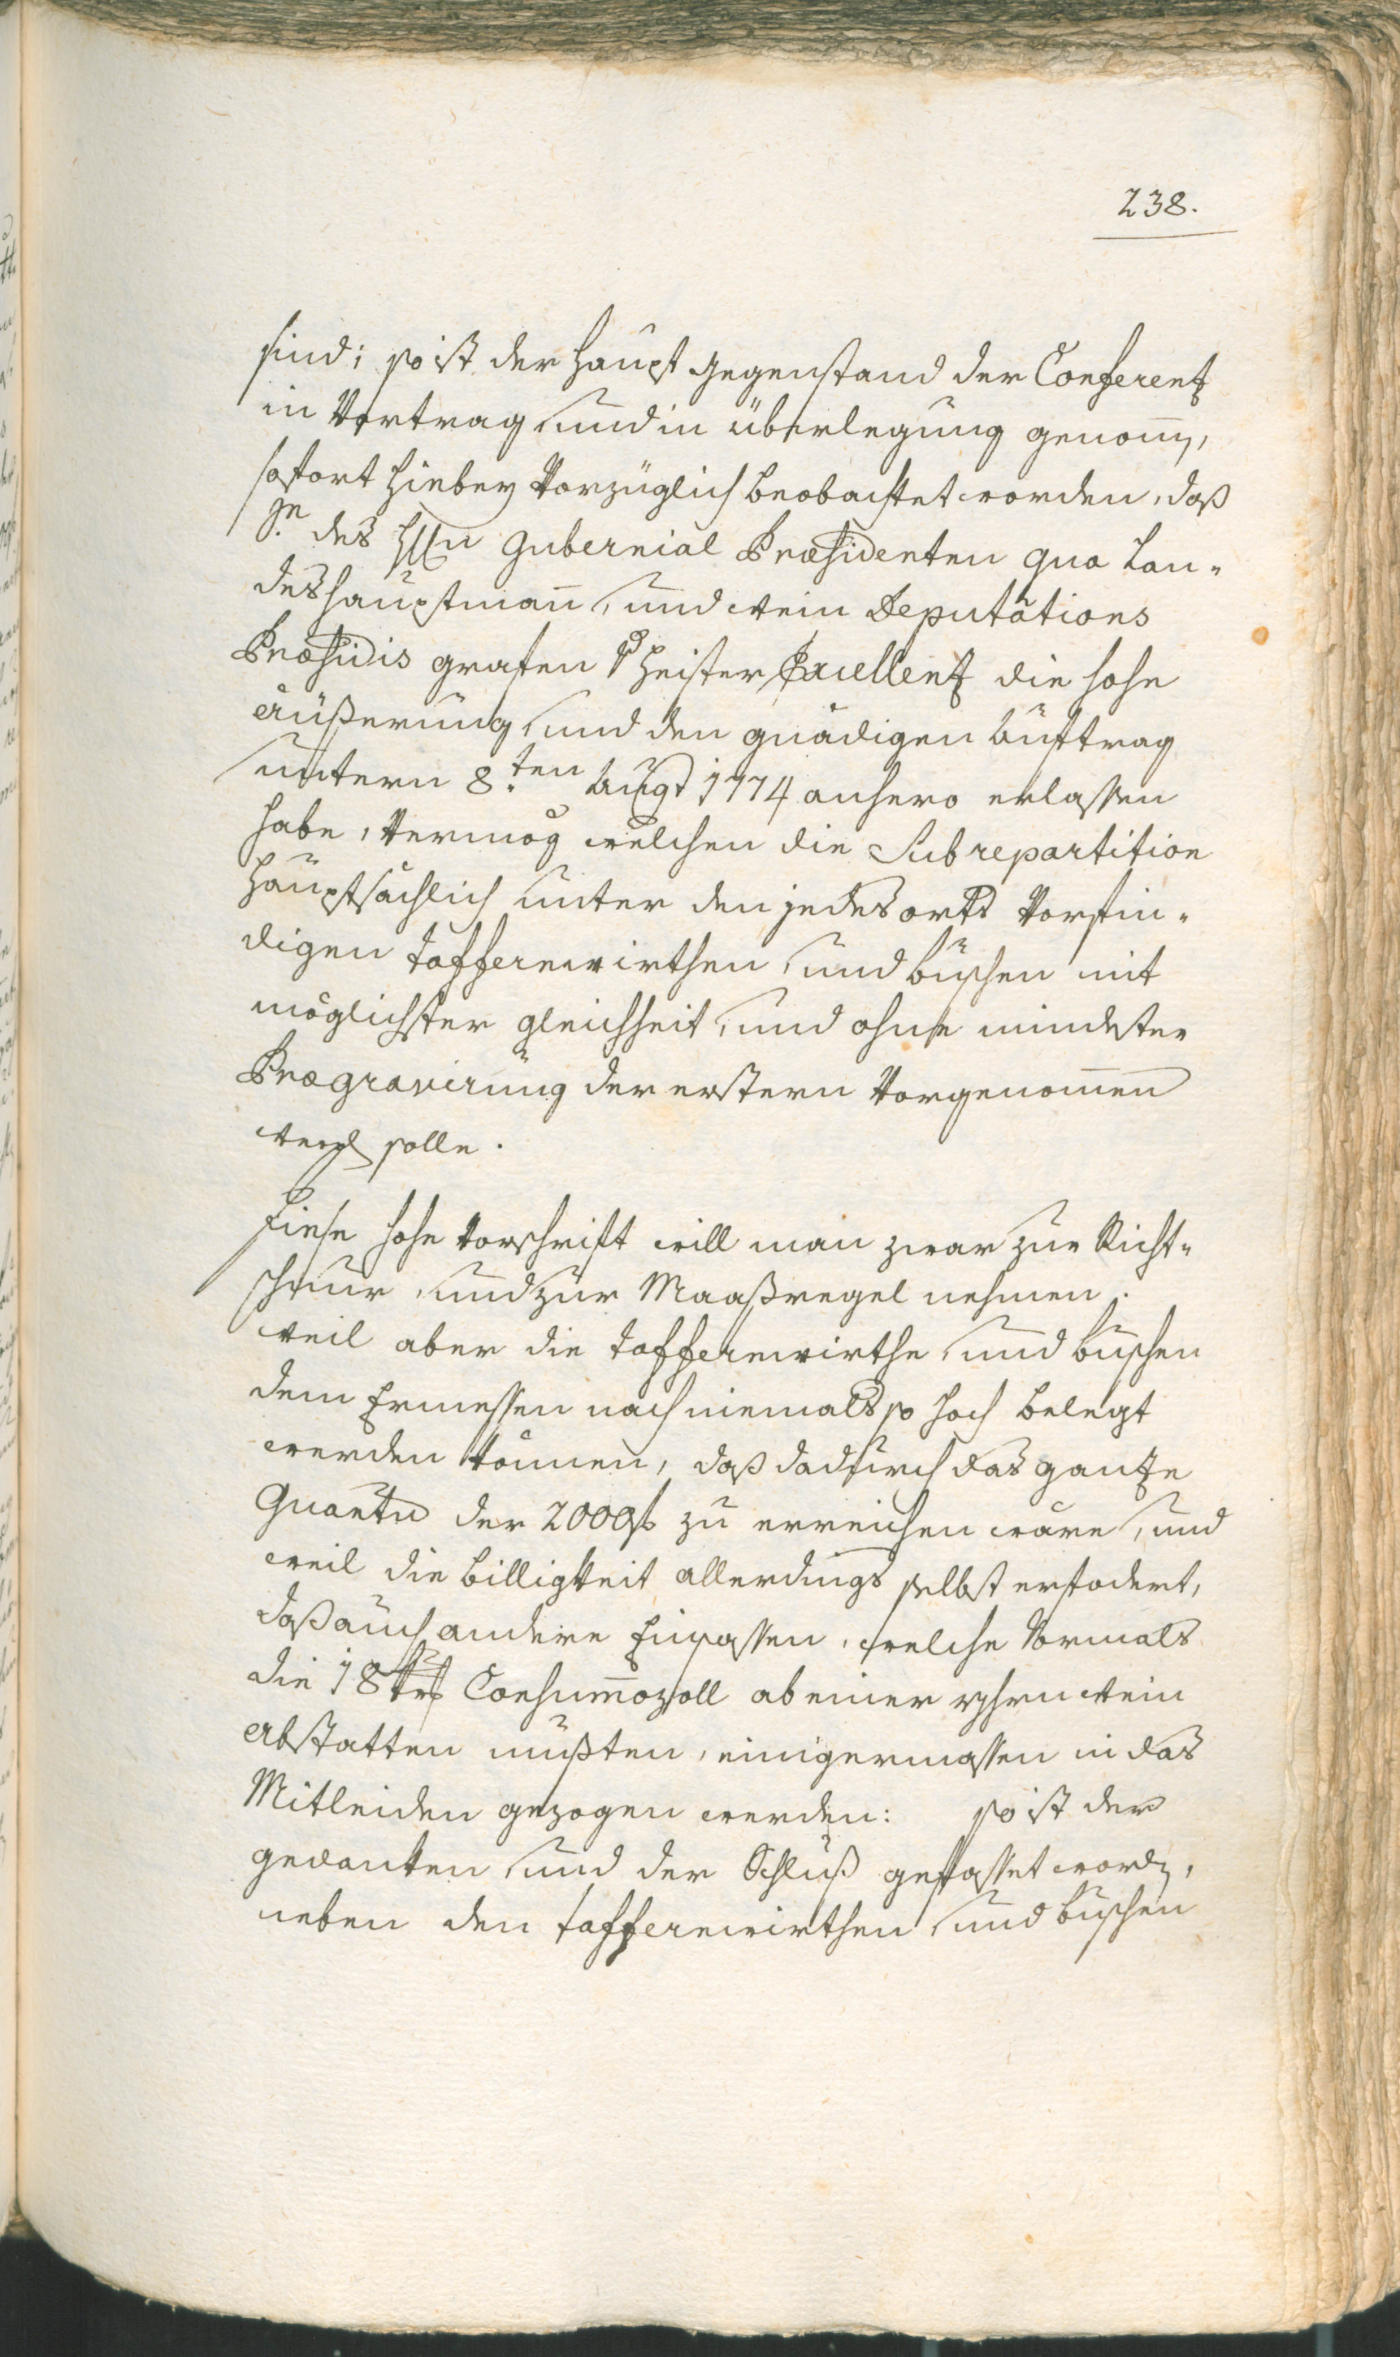 238.
sind; so ist der Haupt Gegenstand der Conferentz
in Vortrag, und in überlegung genom̄en,
sofort hiebey Vorzüglich beobachtet worden, daß
Sr. des Hℓℓn Gubernial Præsidenten qua Lan-
deshauptmañ, und Wein Deputations
Præsidis grafen v Heister Excellentz die hohe
äüßerung, und den gnädigen Auftrag
untern 8.ten Augt 1774 anhero erlassen
habe, Vermög welchen die Subrepartition
Hauptsächlich unter den jedes orts Vorfin-
digen Tafferewirthen, und Buschen mit
möglichster gleichheit, und ohne mindester
Prægravirung der erstern Vorgenom̄en
werd solle.
Diese hohe Vorschrift will man zwar zur Richt-
schnur, und zur Maaßregel nehmen.
weil aber die Tafferewirthe, und Buschen
dem Ermessen nach niemals so hoch belegt
werden können, daß dadurch das gantze
Quantu der 2000 f zu erreichen wäre, und
weil die billigkeit allerdings selbst erfodert,
daß auch andere Insassen, welche Vormals
die 18 kr Consum̄ozoll ab einer Yhrn Wein
abstatten mußten, einigermassen in das
Mitleiden gezogen werden: so ist der
gedanken, und der Schluß gefasset word,
neben den Tafferewirthen, und Buschen